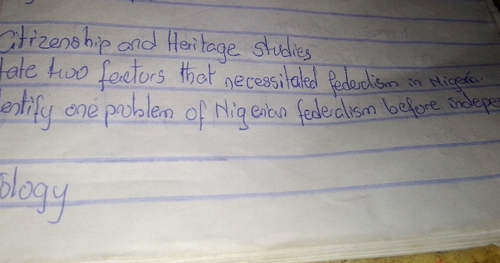 Citizenship and Heritage Studies
tate two factors that necessitated federalism in Nigeria.
entify one problem of Nigerian federalism before indepe
ology